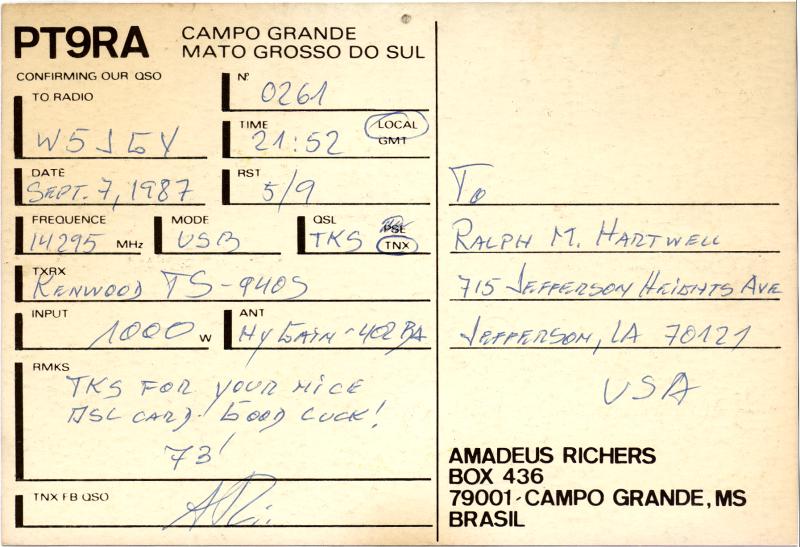 PT9RA
CAMPO GRANDE
MATO GROSSO DO SUL
CONFIRMING OUR QSO
TO RADIO
W5JGY
Nº
0261
TIME
21:52
LOCAL
GMT
DATE
SEPT. 7, 1987
RST
5/9
FREQUENCE
14295 MHz
MODE
USB
QSL
TKS
PSE
TNX
TXRX
KENWOOD TS-940S
INPUT
1000 W
ANT
HY GAIN-402BA
RMKS
TKS FOR YOUR NICE
QSL CARD. GOOD LUCK!
73!
TNX FB QSO
TO
RALPH M. HARTWELL
715 JEFFERSON HEIGHTS AVE
JEFFERSON, LA 70121
USA
AMADEUS RICHERS
BOX 436
79001-CAMPO GRANDE, MS
BRASIL